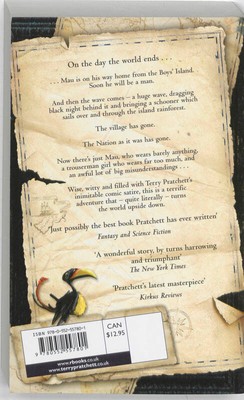 On the day the world ends . . .
. . . Mau is on his way home from the Boys' Island.
Soon he will be a man.
And then the wave comes – a huge wave, dragging
black night behind it and bringing a schooner which
sails over and through the island rainforest.
The village has gone.
The Nation as it was has gone.
Now there's just Mau, who wears barely anything,
a trouserman girl who wears far too much, and
an awful lot of big misunderstandings . . .
Wise, witty and filled with Terry Pratchett's
inimitable comic satire, this is a terrific
adventure that – quite literally – turns the
world upside down.
'Just possibly the best book Pratchett has ever written'
Fantasy and Science Fiction
'A wonderful story, by turns harrowing
and triumphant'
The New York Times
'Pratchett's latest masterpiece'
Kirkus Reviews
ISBN 978-0-552-55780-1
CAN
$12.95
9 780552 557801
www.rbooks.co.uk
www.terrypratchett.co.uk